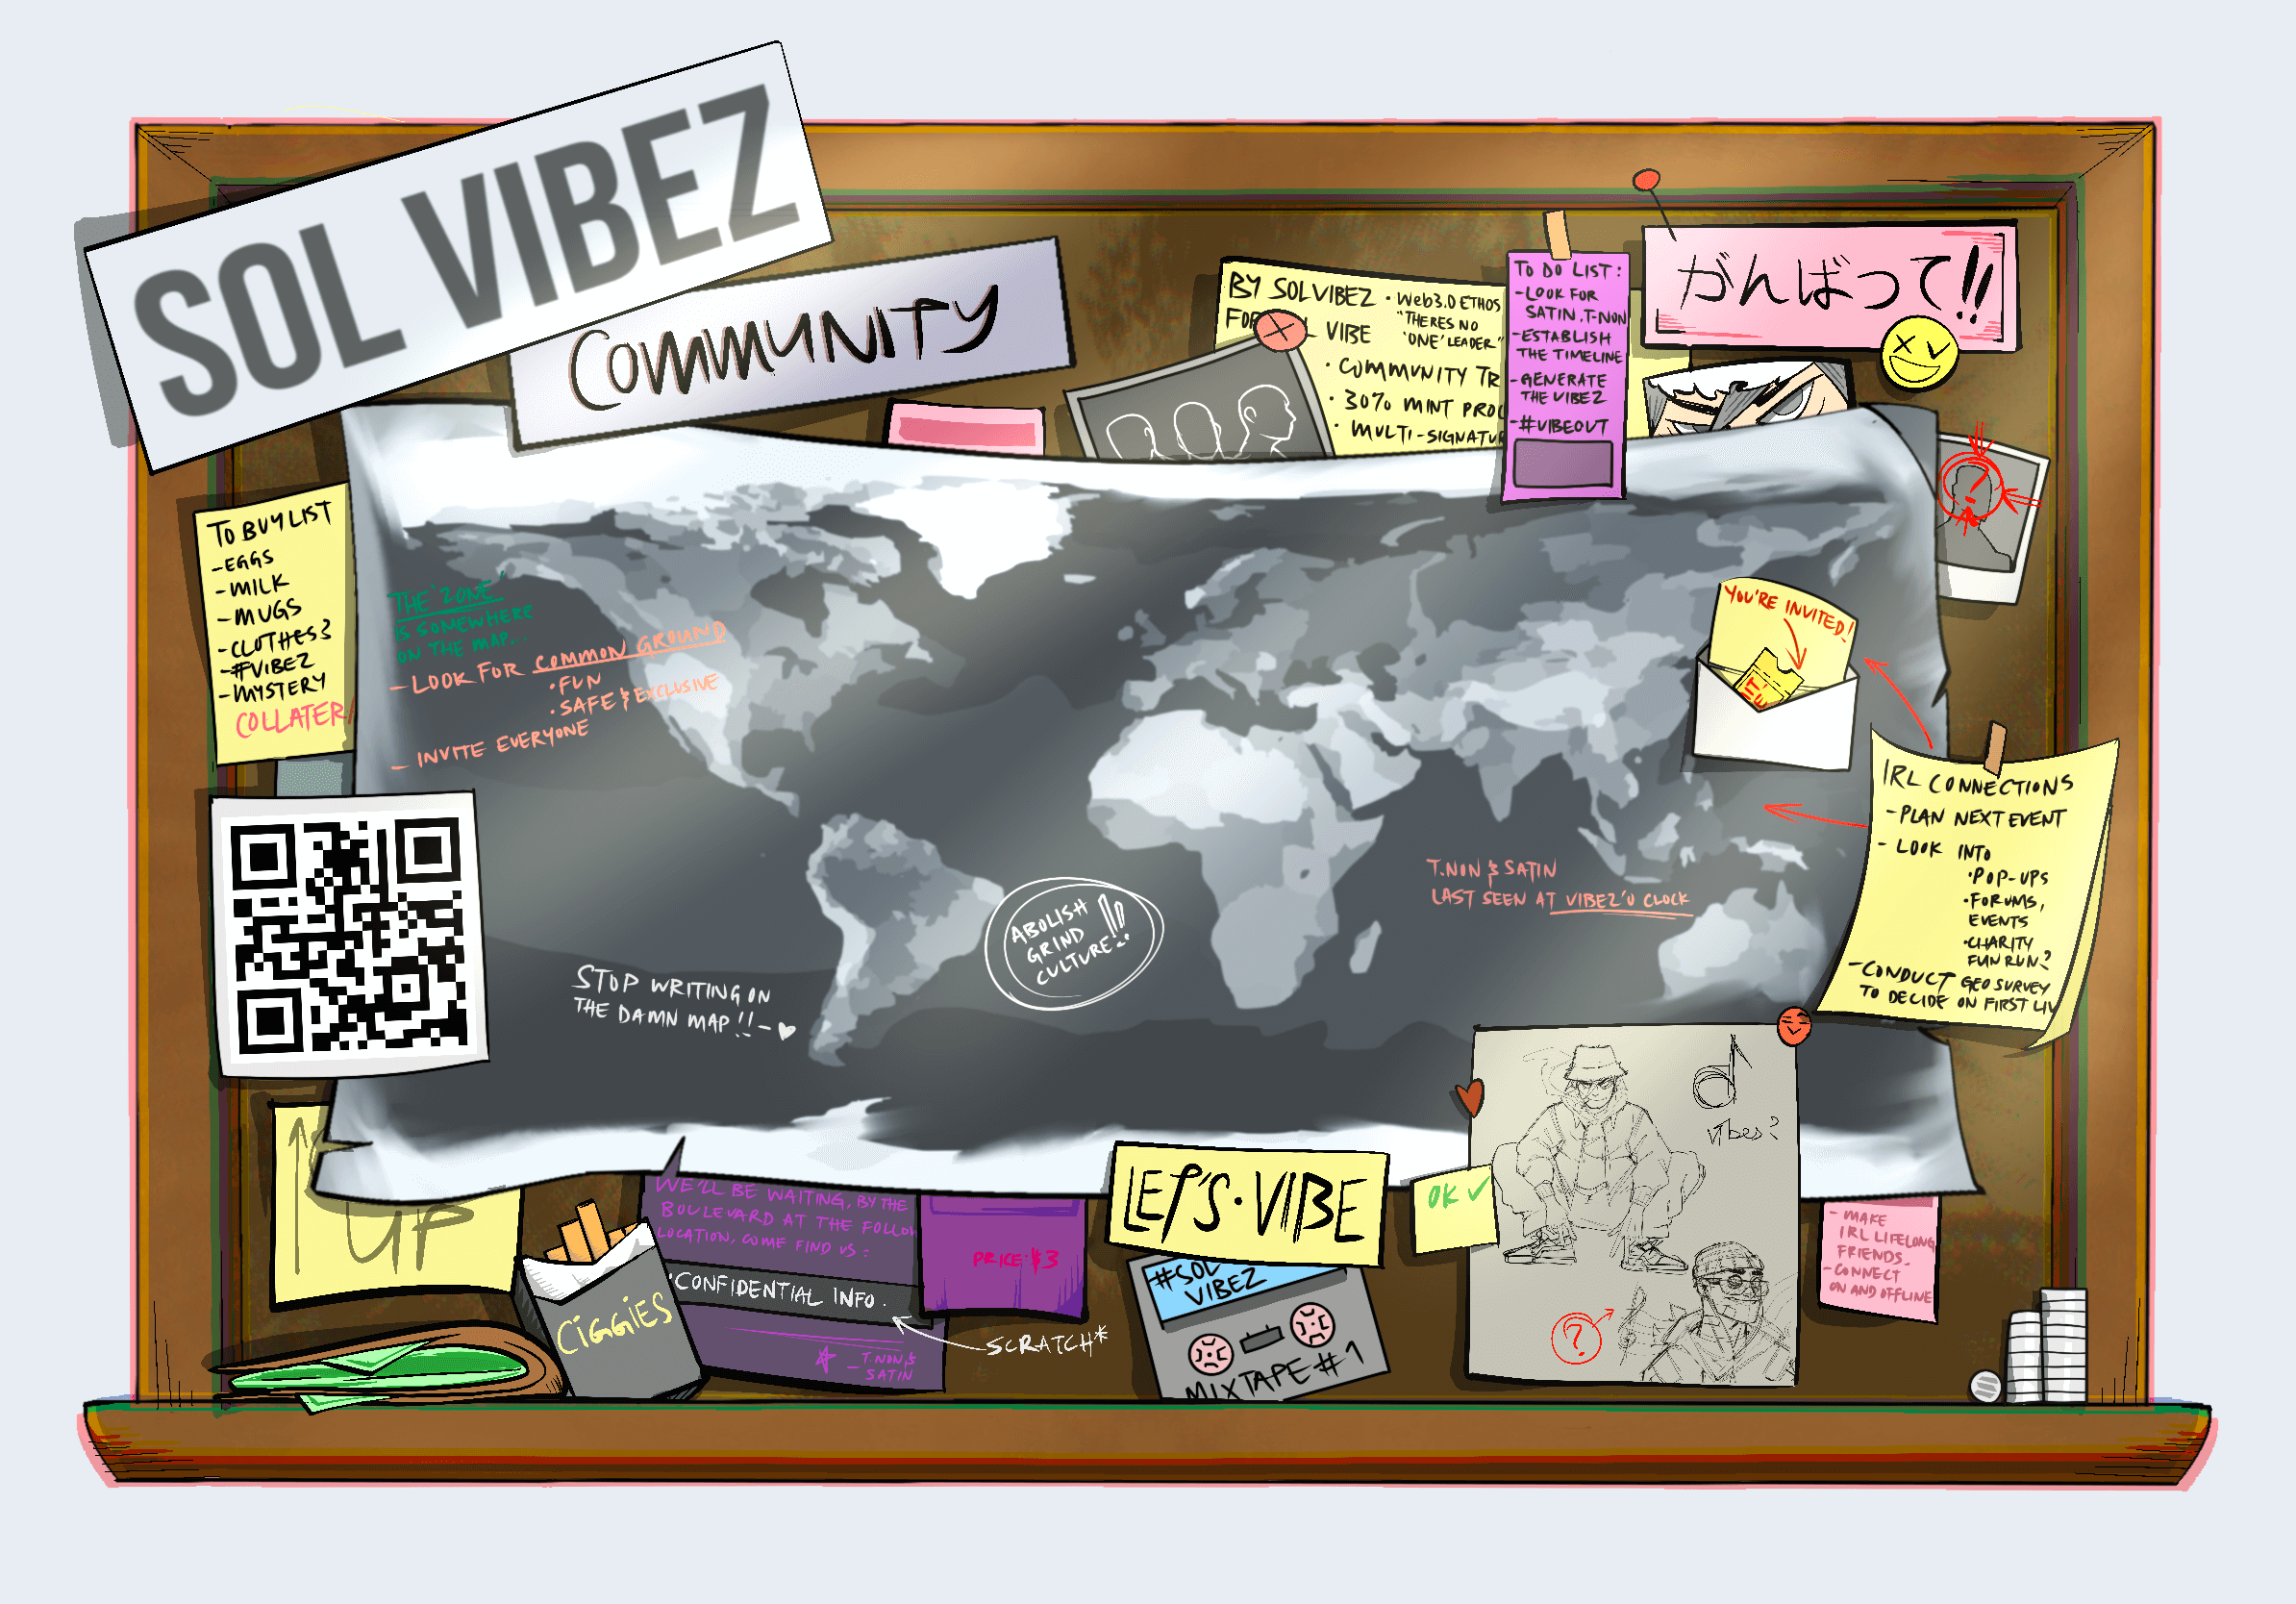 SOL VIBEZ
COMMUNITY
BY SOLVIBEZ
VIBE
• Web3.0 ETHOS
"THERES NO
'ONE' LEADER"
• COMMUNITY
• 30% MINT
• MULTI-SIGNATUR
TO DO LIST:
-LOOK FOR
SATIN, T-NON
-ESTABLISH
THE TIMELINE
-GENERATE
THE VIBEZ
-#VIBEOUT
がんばって!!
?
TO BUY LIST
-EGGS
-MILK
-MUGS
-CLOTHES?
-#VIBEZ
-MYSTERY
COLLATER
THE 'ZONE'
IS SOMEWHERE
ON THE MAP...
- LOOK FOR COMMON GROUND
• FUN
• SAFE & EXCLUSIVE
- INVITE EVERYONE
YOU'RE INVITED!
IRL CONNECTIONS
-PLAN NEXT EVENT
- LOOK INTO
•POP-UPS
•FORUMS,
EVENTS
•CHARITY
FUN RUN?
-CONDUCT GEO SURVEY
TO DECIDE ON FIRST LIV
T.NON & SATIN
LAST SEEN AT VIBEZ'O CLOCK
ABOLISH
GRIND
CULTURE!!
STOP WRITING ON
THE DAMN MAP!!-
vibes?
?
UP
CIGGIES
WE'LL BE WAITING, BY THE
BOULEVARD AT THE FOLLOW
LOCATION, COME FIND US:
•CONFIDENTIAL INFO.
- T.NON &
SATIN
SCRATCH*
PRICE: $3
LET'S•VIBE
#SOL
VIBEZ
MIXTAPE #1
OK ✓
- MAKE
IRL LIFELONG
FRIENDS.
-CONNECT
ON AND OFFLINE